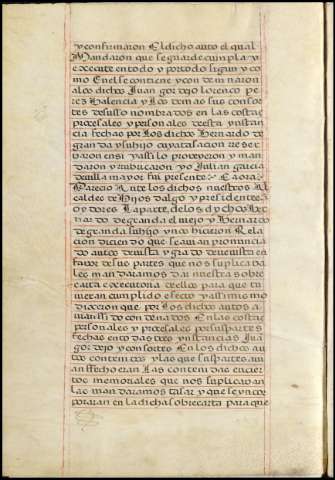 y confirmaron El dicho auto el qual
Mandaron que se guarde cumpla y
execute en todo y por todo segun y co
mo En el se contiene y con de nnaron
a los dichos Juan gordejo lorenco pe
rez Palencia y Los demas sus consor
tes de suso nombrados en las costas
procesales y personales desta ynstan
cia fechas por Los dichos Hernando de
gran da y su hijo cuya tasacion reser
baron en si y assi lo proveyeron y man
daron y rubricaron yo Julian garcia
de villa mayor fui presente = E aora
Parecio Ante los dichos nuestros Al
caldes de Hijos dalgo y presidente e
oydores La parte de los dichos Her
nando de granda el viejo y Hernando
de granda su hijo y nos hicieron Rela
cion diciendo que se avian pronuncia
do autos de vista y grado de revista en
fabor de sus partes que nos suplicaba
les mandaramos dar nuestra sobre
carta executoria dellos para que tu
vieran cumplido efecto y assi mismo
dixeron que por Los dichos autos a
vian sido condenados En las costas
personales y procesales por sus partes
fechas en todas tres ynstancias Jua
gordejo y consortes En los dichos au
tos contenidos y las que sus partes avi
an ffecho eran Las contenidas en cier
tos memoriales que nos suplicavan
las mandaramos tasar y que se yncor
poraran en la dicha sobrecarta para que